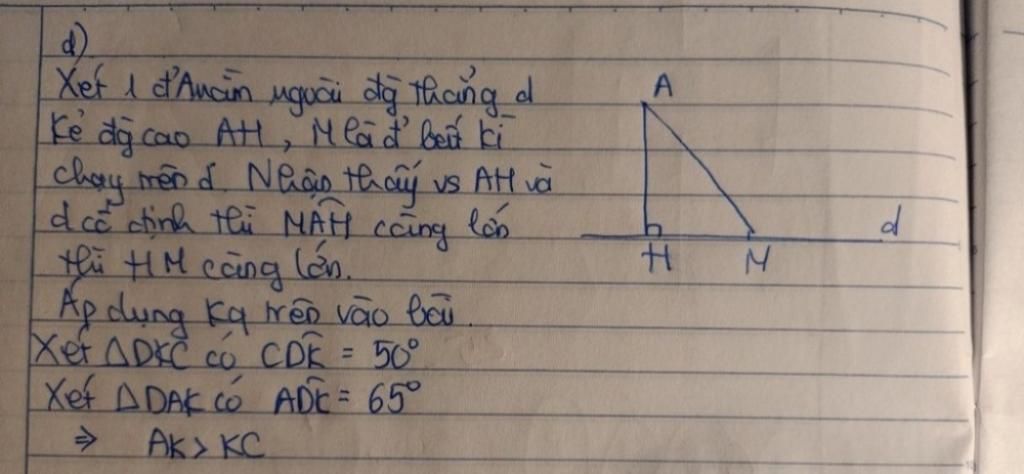 d)
Xét 1 đ' A nằm ngoài đg thẳng d
Kẻ đg cao AH, M là đ' bất kì
chạy trên d. Nhận thấy vs AH và
d cố định thì MAH càng lớn
thì HM càng lớn.
Áp dụng kq trên vào bài.
Xét △DKC có CDK = 50°
Xét △DAK có ADK = 65°
⇒ AK > KC
A
H
M
d